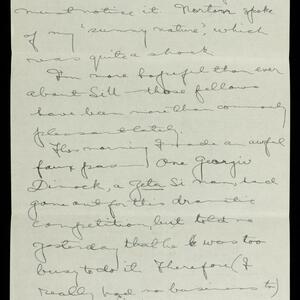 must notice it Norton spoke
of my "sunny nature", which
was quite a shock
I'm more hopeful than ever
about Sill — those fellows
have been more than commonly
pleasant lately.
This morning I made an awful
faux pas — One George
Dimock, a Zeta Si man, had
gone out for this dramatic
competition, but told us
yesterday that he was too
busy to do it Therefore (I
really had no business to)